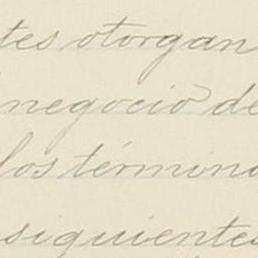 tes otorgan
negocio de
los término
siguientes